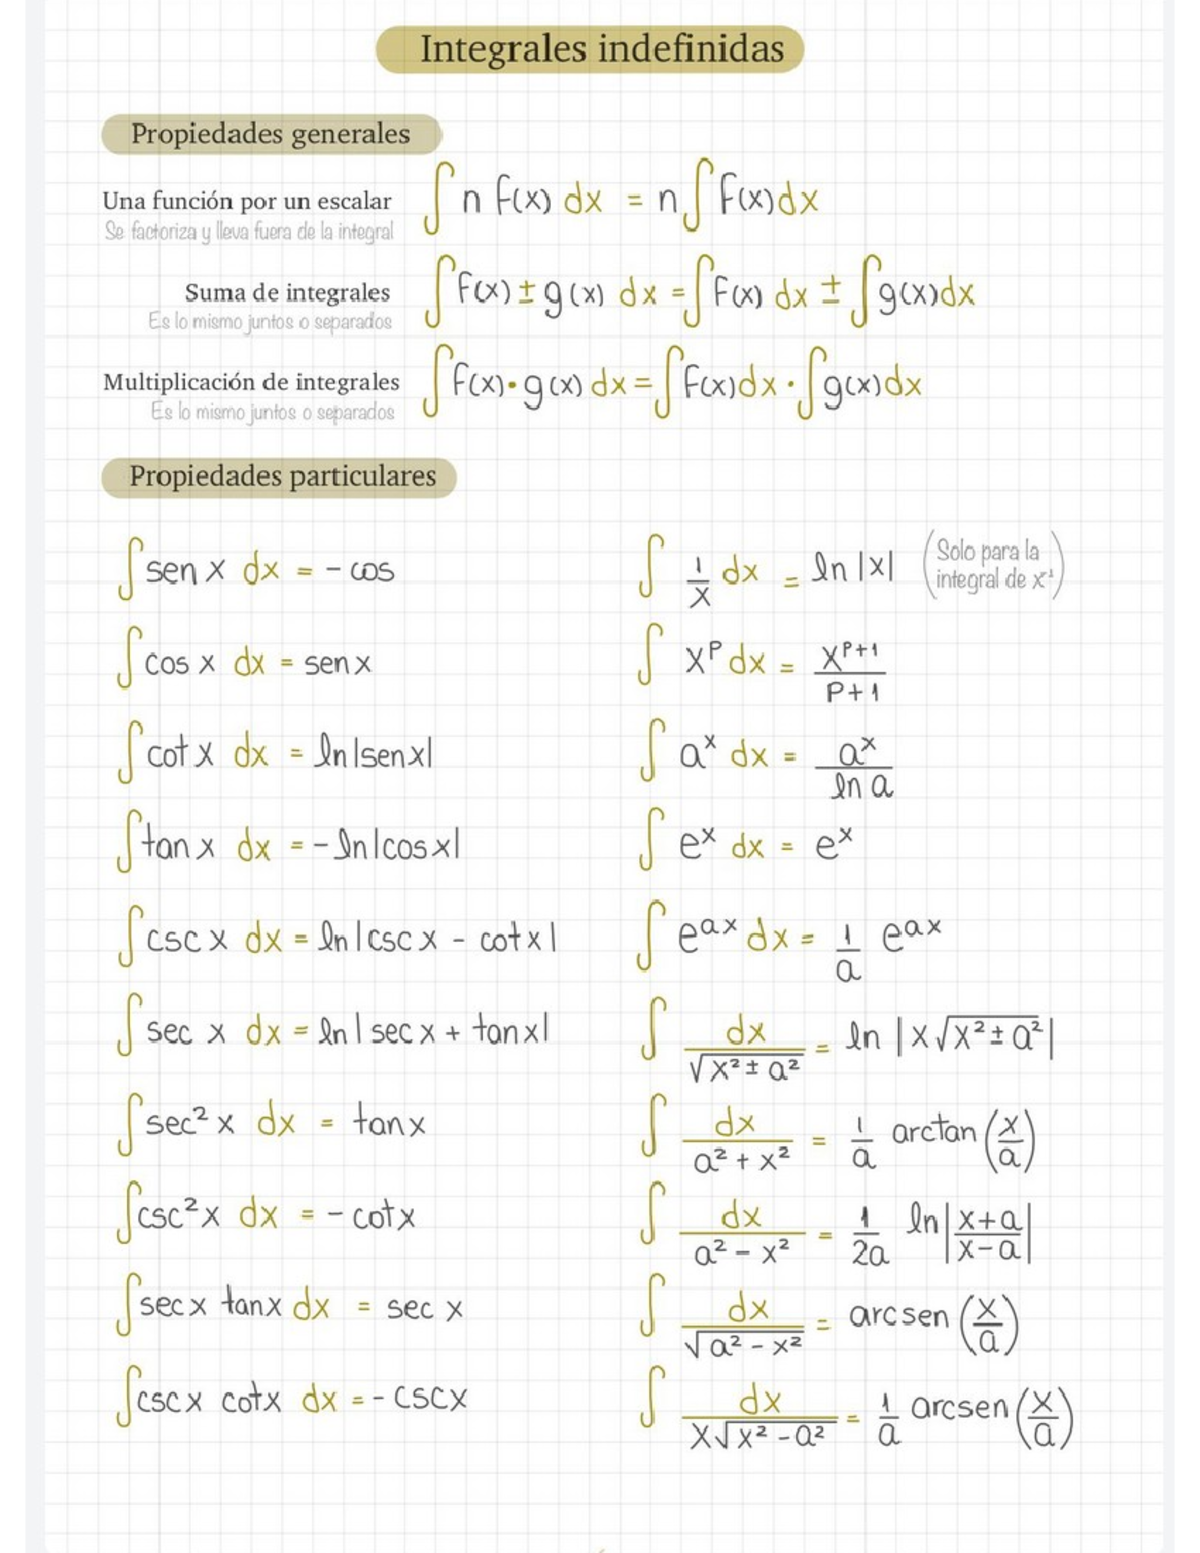 Integrales indefinidas
Propiedades generales
Una función por un escalar
Se factoriza y lleva fuera de la integral
∫ n f(x) dx = n ∫ f(x)dx
Suma de integrales
Es lo mismo juntos o separados
∫ f(x) ± g(x) dx = ∫ f(x) dx ± ∫ g(x)dx
Multiplicación de integrales
Es lo mismo juntos o separados
∫ f(x)·g(x) dx = ∫ f(x)dx · ∫ g(x)dx
Propiedades particulares
∫ sen x dx = - cos
∫ cos x dx = sen x
∫ cot x dx = ln|sen x|
∫ tan x dx = - ln|cos x|
∫ csc x dx = ln|csc x - cot x|
∫ sec x dx = ln|sec x + tan x|
∫ sec² x dx = tan x
∫ csc² x dx = - cot x
∫ sec x tan x dx = sec x
∫ csc x cot x dx = - csc x
∫ 1/x dx = ln|x| (Solo para la
integral de x⁻¹)
∫ x^p dx = x^(p+1)/(p+1)
∫ a^x dx = a^x/ln a
∫ e^x dx = e^x
∫ e^(ax) dx = 1/a e^(ax)
∫ dx/√(x² ± a²) = ln |x√(x² ± a²)|
∫ dx/(a² + x²) = 1/a arctan (x/a)
∫ dx/(a² - x²) = 1/2a ln|(x+a)/(x-a)|
∫ dx/√(a² - x²) = arcsen (x/a)
∫ dx/(x√(x² - a²)) = 1/a arcsen (x/a)